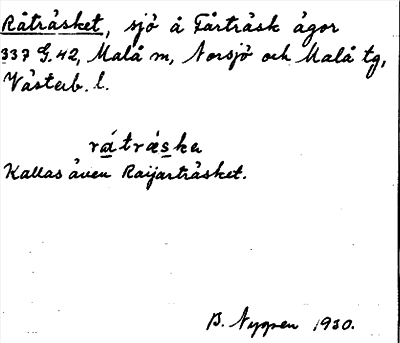 Råträsket, sjö å Fårträsk ägor
337 G. 42, Malå m, Norsjö och Malå tg,
Västerb. l.
rátræska
Kallas även Raijarträsket.
B. Nygren 1930.